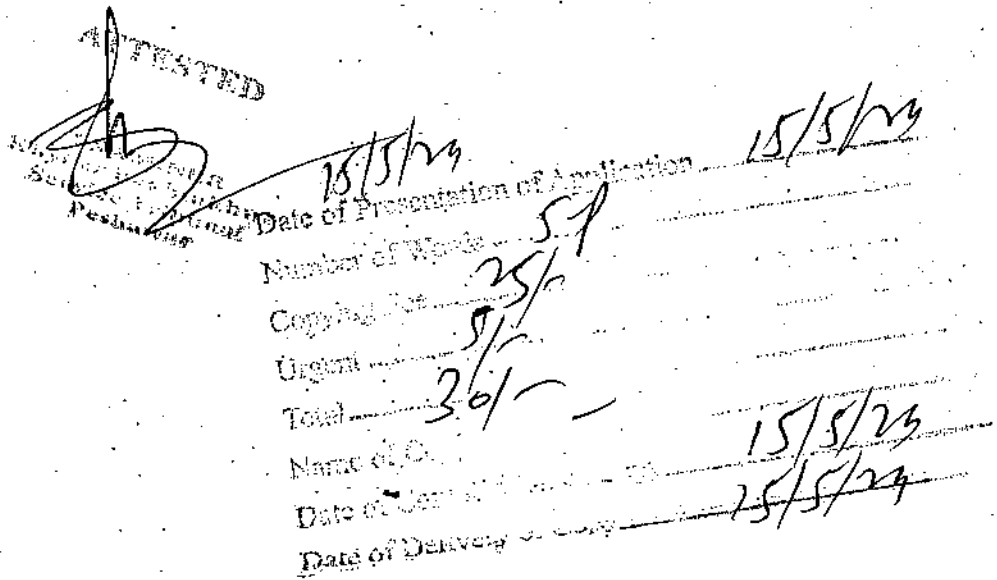 ATTESTED
15/5/23
Peshawar
Date of Presentation of Application 15/5/23
Number of Words 5P
Copying Fee 25/-
Urgent 5/-
Total 30/-
Name of
Date of 15/5/23
Date of Delivery of Copy 15/5/23